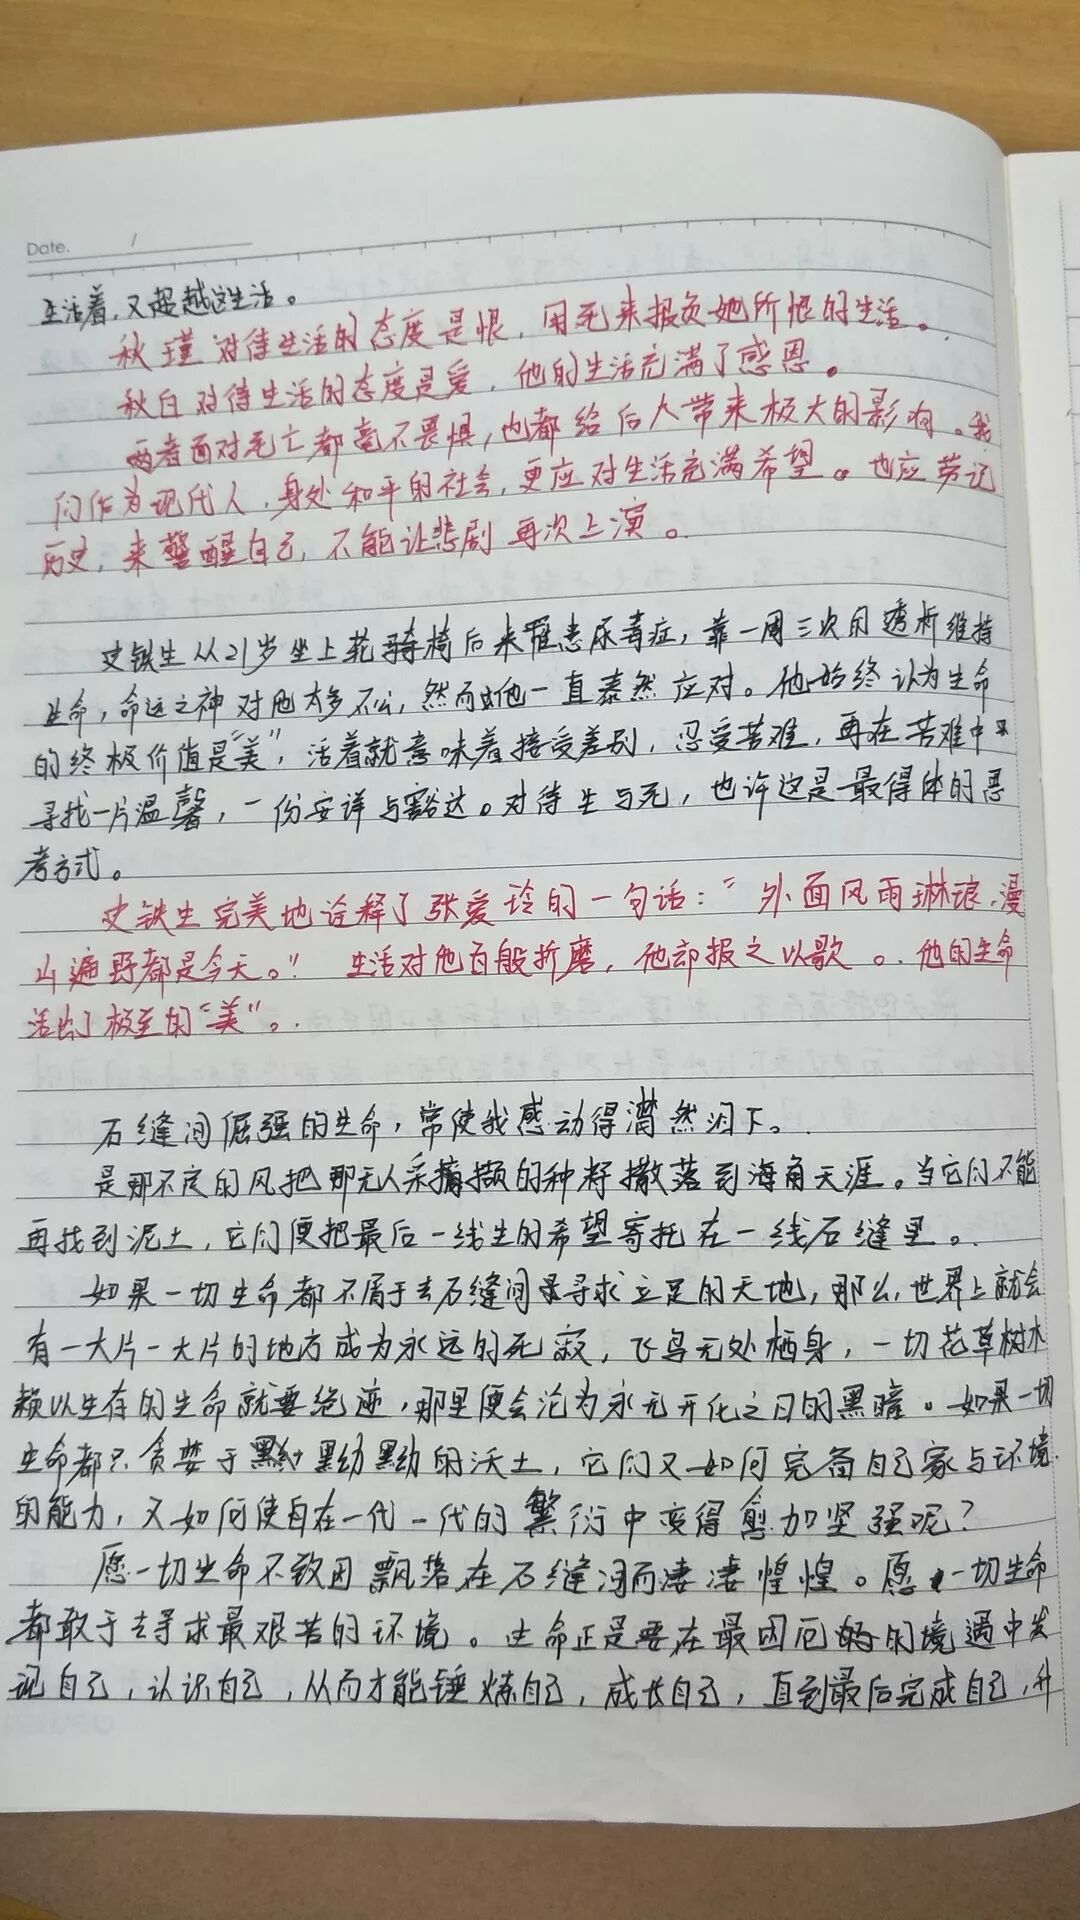 Date. /
生活着，又超越这生活。
秋瑾对待生活的态度是恨，用死来报负她所恨的生活。
秋白对待生活的态度是爱，他的生活充满了感恩。
两者面对死亡都毫不畏惧，也都给后人带来极大的影响。我
们作为现代人，身处和平的社会，更应对生活充满希望。也应劳记
历史，来警醒自己，不能让悲剧再次上演。
史铁生从21岁坐上轮椅后来罹患尿毒症，靠一周三次的透析维持
生命，命运之神对他太多不公，然而他一直泰然应对。他始终认为生命
的终极价值是“美”，活着就意味着接受差别，忍受苦难，再在苦难中
寻找一片温馨，一份安详与豁达。对待生与死，也许这是最得体的思
考方式。
史铁生完美地诠释了张爱玲的一句话：“外面风雨琳琅，漫
山遍野都是今天。”生活对他百般折磨，他却报之以歌。他的生命
活出了极至的“美”。
石缝间倔强的生命，常使我感动得潸然泪下。
是那不定的风把那无人采撷的种籽撒落到海角天涯。当它们不能
再找到泥土，它们便把最后一线生的希望寄托在一线石缝里。
如果一切生命都不屑于去石缝间寻求立足的天地，那么，世界上就会
有一大片一大片的地方成为永远的死寂，飞鸟无处栖身，一切花草树木
赖以生存的生命就要绝迹，那里便会沦为永无开化之日的黑暗。如果一切
生命都只贪婪于黑黝黝的沃土，它们又如何完备自己家与环境
的能力，又如何使自在一代一代的繁衍中变得愈加坚强呢？
愿一切生命不致因飘落在石缝间而凄凄惶惶。愿一切生命
都敢于去寻求最艰苦的环境。生命正是要在最困厄的境遇中发
现自己，认识自己，从而才能锤炼自己，成长自己，直到最后完成自己，升